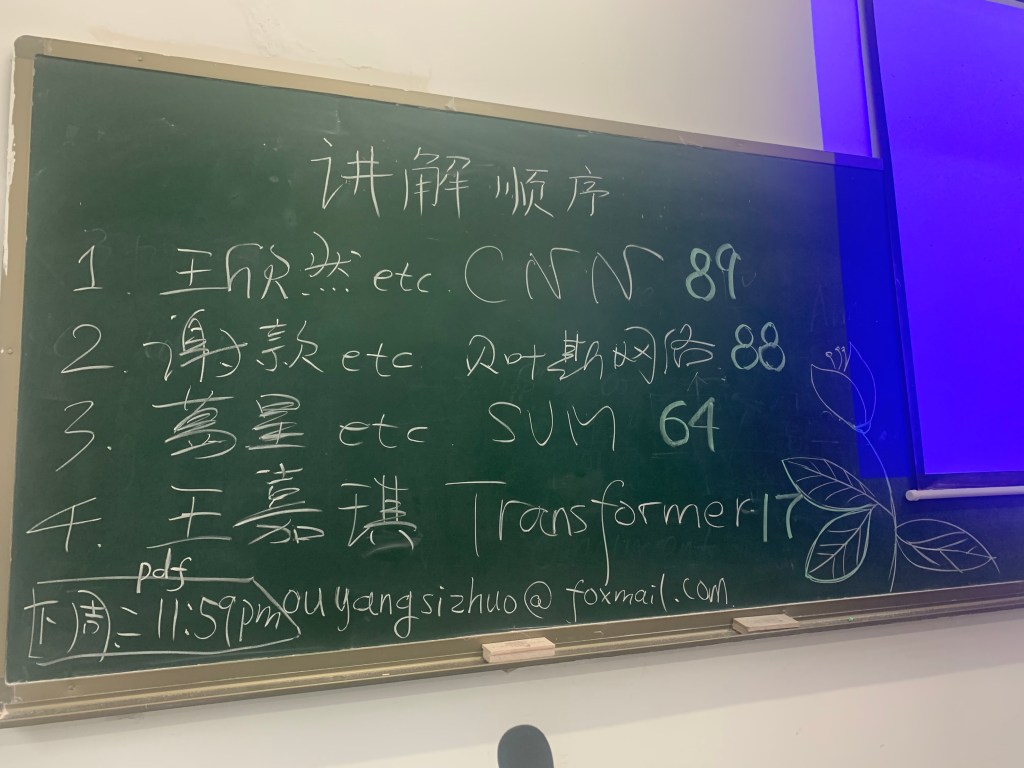 讲解顺序
1. 王欣然 etc. CNN 89
2. 谢款 etc. 贝叶斯网络 88
3. 葛星 etc. SVM 64
4. 王嘉琪 Transformer 17
pdf
下周二 11:59pm ouyangsizhuo@foxmail.com